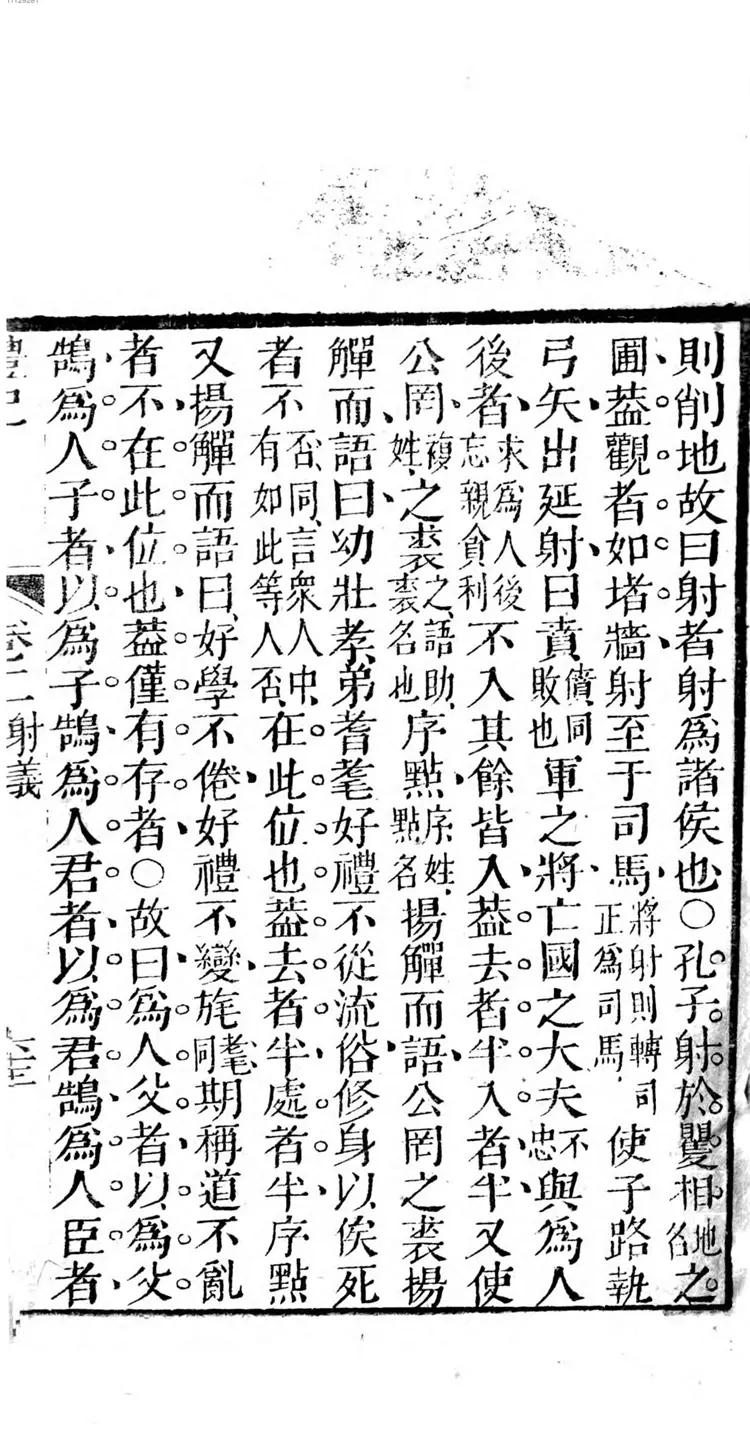 則削地故曰射者射爲諸侯也○孔子射於矍相地名之
圃葢觀者如堵牆射至于司馬將射則轉司正爲司馬使子路執
弓矢出延射曰賁僨同敗也軍之將亡國之大夫不忠與爲人
後者求爲人後忘親貪利不入其餘皆入葢去者半入者半又使
公罔複姓之裘之語助裘名也序點序姓點名揚觶而語公罔之裘揚
觶而語曰幼壯孝弟耆耄好禮不從流俗修身以俟死
者不否同言衆人中有如此等人否在此位也葢去者半處者半序點
又揚觶而語曰好學不倦好禮不變旄耄同期稱道不亂
者不在此位也葢僅有存者○故曰爲人父者以爲父
鵠爲人子者以爲子鵠爲人君者以爲君鵠爲人臣者
禮記 卷二 射義 六三